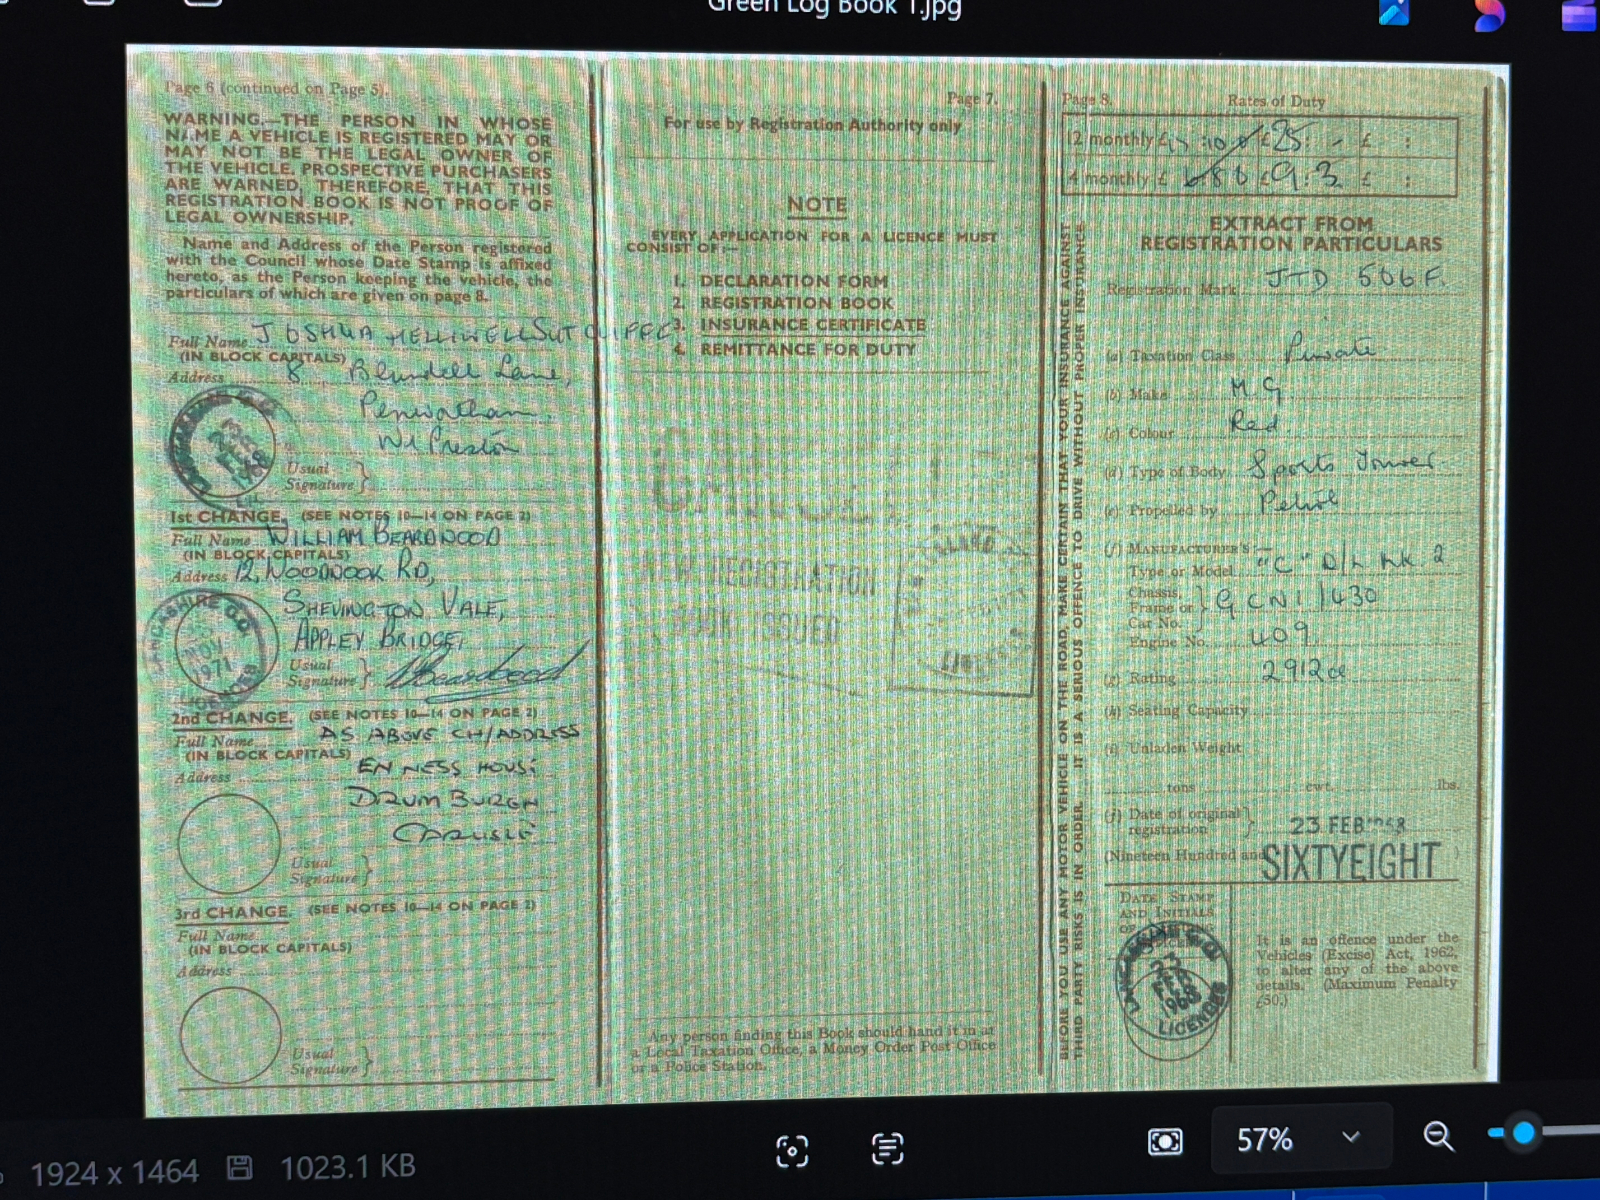 Green Log Book 1.jpg
Page 6 (continued on Page 5).
WARNING.—THE PERSON IN WHOSE
NAME A VEHICLE IS REGISTERED MAY OR
MAY NOT BE THE LEGAL OWNER OF
THE VEHICLE. PROSPECTIVE PURCHASERS
ARE WARNED, THEREFORE, THAT THIS
REGISTRATION BOOK IS NOT PROOF OF
LEGAL OWNERSHIP.
Name and Address of the Person registered
with the Council whose Date Stamp is affixed
hereto, as the Person keeping the vehicle, the
particulars of which are given on page 8.
Full Name JOSHUA HELLIWELL SUTCLIFFE
(IN BLOCK CAPITALS)
Address 8 Blundell Lane,
Penwortham
Nr Preston
FEB 1968
Usual
Signature }
1st CHANGE. (SEE NOTES 10—14 ON PAGE 2)
Full Name WILLIAM BEARDWOOD
(IN BLOCK CAPITALS)
Address 12, WOODNOOK RD,
SHEVINGTON VALE,
APPLEY BRIDGE,
LANCASHIRE C.C.
NOV 1971
Usual
Signature } Beardwood
2nd CHANGE. (SEE NOTES 10—14 ON PAGE 2)
Full Name AS ABOVE CH/ADDRESS
(IN BLOCK CAPITALS)
Address EN NESS HOUSE
DRUMBURGH
CARLISLE
Usual
Signature }
3rd CHANGE. (SEE NOTES 10—14 ON PAGE 2)
Full Name
(IN BLOCK CAPITALS)
Address
Usual
Signature }
Page 7.
For use by Registration Authority only
NOTE
EVERY APPLICATION FOR A LICENCE MUST
CONSIST OF:—
1. DECLARATION FORM
2. REGISTRATION BOOK
3. INSURANCE CERTIFICATE
4. REMITTANCE FOR DUTY
CANCELLED
NEW REGISTRATION
BOOK ISSUED
Any person finding this Book should hand it in at
a Local Taxation Office, a Money Order Post Office
or a Police Station.
BEFORE YOU USE ANY MOTOR VEHICLE ON THE ROAD, MAKE CERTAIN THAT YOUR INSURANCE AGAINST
THIRD PARTY RISKS IS IN ORDER. IT IS A SERIOUS OFFENCE TO DRIVE WITHOUT PROPER INSURANCE.
Page 8. Rates of Duty
12 monthly £17:10:0 £25:- £ :
4 monthly £ £9:3 £ :
EXTRACT FROM
REGISTRATION PARTICULARS
Registration Mark JTD 506F.
(a) Taxation Class Private
(b) Make M.G
(c) Colour Red
(d) Type of Body Sports Tourer
(e) Propelled by Petrol
(f) MANUFACTURER'S:—
Type or Model "C" D/L MK. 2
Chassis,
Frame or } GCN1/430
Car No.
Engine No. 409
(g) Rating 2912cc
(h) Seating Capacity
(i) Unladen Weight
tons cwt. lbs.
(j) Date of original
registration } 23 FEB 1968
(Nineteen Hundred and SIXTYEIGHT )
DATE STAMP
AND INITIALS
OF
LANCASHIRE C.C.
FEB 1968
LICENCES
It is an offence under the
Vehicles (Excise) Act, 1962,
to alter any of the above
details. (Maximum Penalty
£50.)
1924 x 1464 1023.1 KB 57%